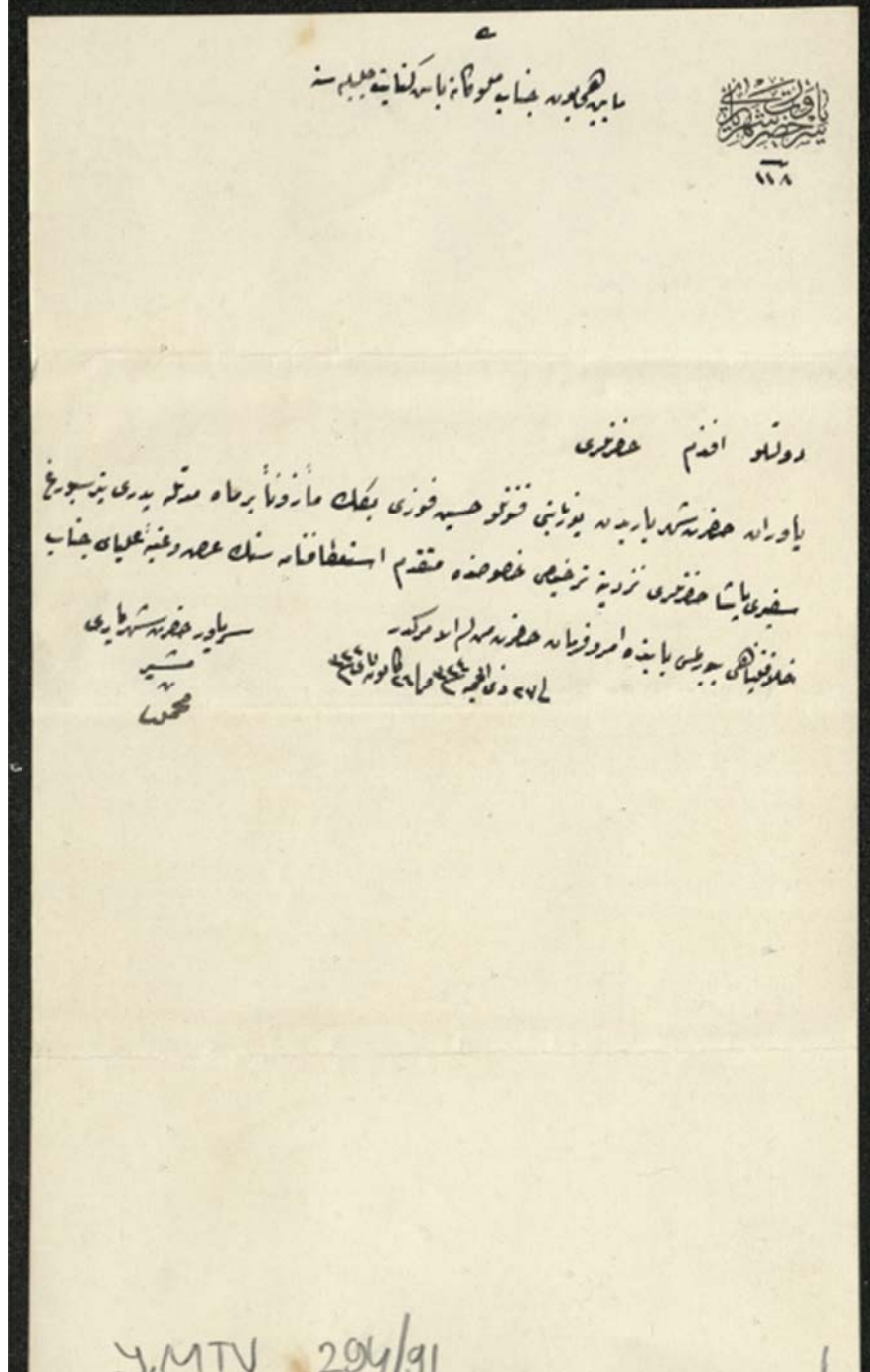 مابین همایون جناب ملوكانه باش كتابت جلیله سنه
یاوریت حضرت شهریاری
١١٨
دولتلو افندم حضرتلری
یاوران حضرت شهریاریدن یوزباشی فتوتلو حسین فوزی بكك مأذوناً بر ماه مدتله پدری پترسبورغ
سفیری پاشا حضرتلری نزدینه ترخیصی خصوصنده متقدم استعطافنامه سنك عرض و عتبهٔ علیای جناب
خلافتپناهی بیورلمسی بابنده امر و فرمان حضرت من له الامركدر
فی ٢٧ ذی الحجه ٣٢٤ و فی ٢٩ كانون ثانی ٣٢٢
سریاور حضرت شهریاری
مشیر
محمد
Y.MTV 294/91
1